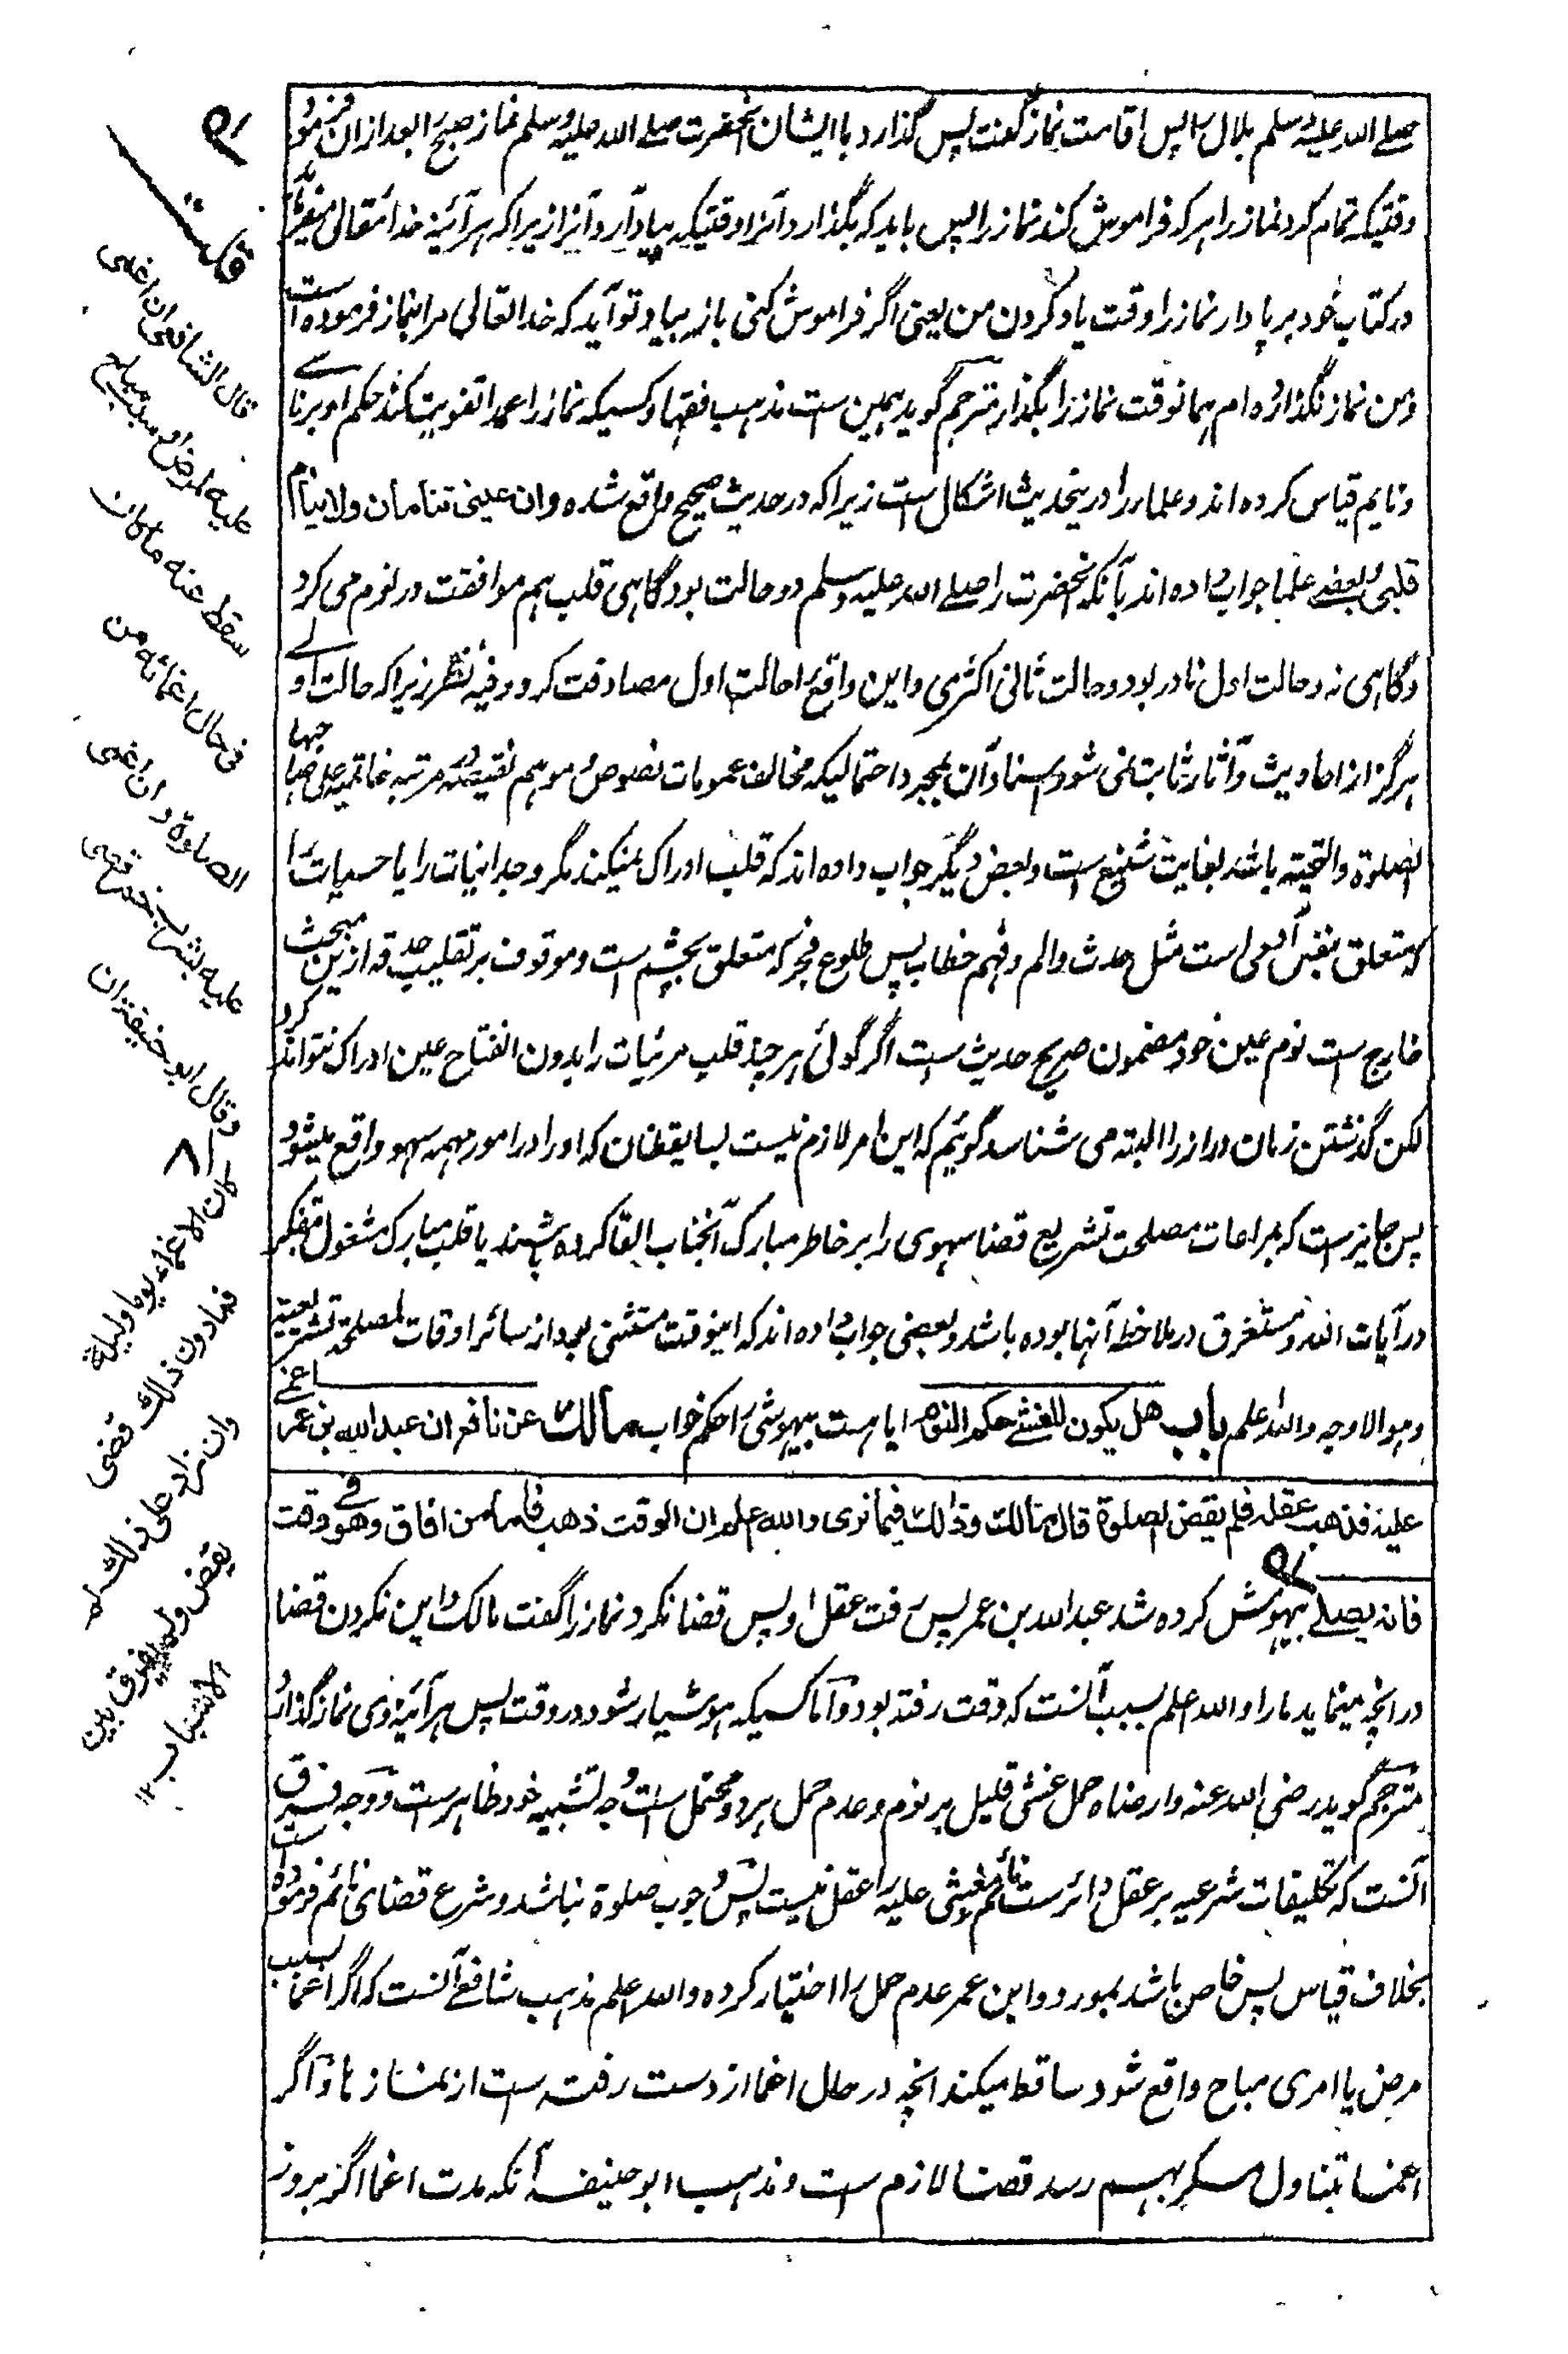 صلے الله علیه وسلم بلال را پس اقامت نماز گفت پس گذارد با ایشان آنحضرت صلے الله علیه وسلم نماز صبح را بعد ازان فرمود
وقتیکه تمام کرد نماز را هر که فراموش کند نماز را پس باید که بگذارد آنرا وقتیکه بیاد آرد آنرا زیرا که هر آئینه خدا تعالی میفرماید
در کتاب خود برپا دار نماز را وقت یاد کردن من یعنی اگر فراموش کنی باز بیاد تو آید که خدا تعالی مرا بنماز فرموده است
ومن نماز نگذارده ام همانوقت نماز را بگذار مترجم گوید همین ست مذهب فقها وکسیکه نماز را عمدا تفویت کند حکم او بر ناسے
ونایم قیاس کرده اند وعلما را درینحدیث اشکال ست زیرا که در حدیث صحیح واقع شده وان عینی تنامان ولا ینام
قلبی وبعضے علما جواب داده اند بآنکه آنحضرت را صلے الله علیه وسلم دو حالت بود گاهی قلب هم موافقت در نوم می کرد
وگاهی نه وحالت اول نادر بود وحالت ثانی اکثری واین واقع را حالت اول مصادفت کرد وفیه نظر زیرا که حالت اولے
هرگز از احادیث وآثار ثابت نمی شود واسناد آن بمجرد احتمالیکه مخالف عمومات نصوص وموهم نقیصه مرتبه خاتمیه علی صاحبها
الصلوة والتحیة باشد بغایت شنیع ست وبعض دیگر جواب داده اند که قلب ادراک نمیکند مگر وجدانیات را یا حسیات را
که متعلق بنفس آدمی است مثل حدث والم وفهم خطاب پس طلوع فجر که متعلق بچشم است وموقوف بر تقلیب حدقه ازین مبحث
خارج ست نوم عین خود مضمون صریح حدیث ست اگر گوئی هر چند قلب مرئیات را بدون انفتاح عین ادراک نتواند کرد
لکن گذشتن زمان دراز را البته می شناسد گوئیم که این امر لازم نیست بسا یقظان که او را در امور مهمه سهو واقع میشود
پس جایز ست که بمراعات مصلحت تشریع قضا سهوی را بر خاطر مبارک آنجناب القا کرده باشند یا قلب مبارک مشغول بتفکر
در آیات الله ومستغرق در ملاحظه آنها بوده باشد وبعضی جواب داده اند که اینوقت مستثنی بود از سائر اوقات لمصلحة تشریعیة
وهو الاوجه والله اعلم باب هل یکون للغشے حکم النوم ایا هست بیهوشی را حکم خواب مالک عن نافع ان عبد الله بن عمر اغمی
علیه فذهب عقله فلم یقض الصلوة قال مالک وذلک فیما نری والله اعلم ان الوقت ذهب فاما من افاق وهو فی وقت
فانه یصلے بیهوش کرده شد عبد الله بن عمر پس رفت عقل او پس قضا نکرد نماز را گفت مالک واین نکردن قضا
در آنچه مینماید ما را والله اعلم بسبب آنست که وقت رفته بود واما کسیکه هوشیار شود در وقت پس هر آئینه وی نماز گذارد
مترجم گوید رضی الله عنه وارضاه حمل غشی قلیل بر نوم وعدم حمل هر دو محتمل ست وجه تشبیه خود ظاهر ست ووجه فرق
آنست که تکلیفات شرعیه بر عقل دائر ست نائم ومغشی علیه را عقل نیست پس وجوب صلوة نباشد وشرع قضای نائم فرموده است
بخلاف قیاس پس خاص باشد بمورد وابن عمر عدم حمل را اختیار کرده والله اعلم مذهب شافعے آنست که اگر اغما بسبب
مرض یا امری مباح واقع شود ساقط میکند آنچه در حال اغما از دست رفته ست از نمازها واگر
اغما بتناول مسکر بهم رسد قضا لازم ست ومذهب ابو حنیفه آنکه مدت اغما اگر بروز
قلت
قال الشافعی ان اغمی
علیه لمرض او سبب مباح
سقط عنه ما کان
فی حال اغمائه من
الصلوة وان اغمی
علیه بشرب خمر قضی
وقال ابو حنیفة ان
کان الاغماء یوما ولیلة
فما دون ذلک قضی
وان زاد علی ذلک لم
یقض ولم یفرق بین
الاسباب ۱۲